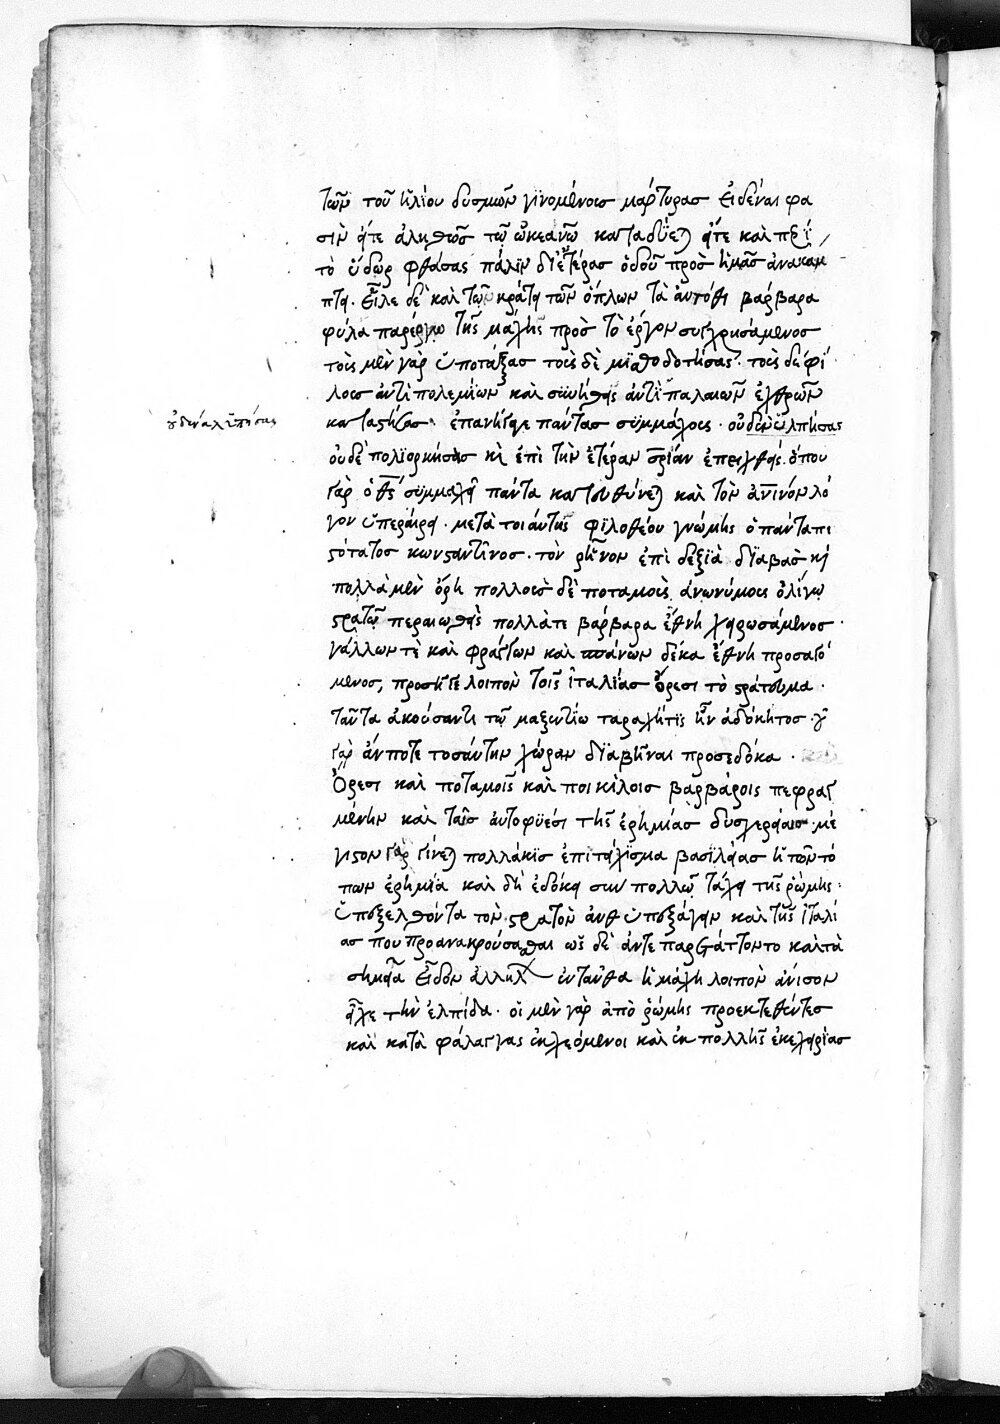 τῶν τοῦ ἡλίου δυσμῶν γινομένοις μάρτυρας εἰδέναι φα
σὶν εἴτε ἀληθῶς τῷ ὠκεανῷ καταδύει εἴτε καὶ περὶ
τὸ ὕδωρ φθάσας πάλιν δι' ἑτέρας ὁδοῦ πρὸς ἡμᾶς ἀνακάμ
πτει. εἷλε δὲ καὶ τῷ κράτει τῶν ὅπλων τὰ αὐτόθι βάρβαρα
φύλα παρέργῳ τῆς μάχης πρὸς τὸ ἔργον συγχρησάμενος
τοὺς μὲν γὰρ ὑποτάξας τοὺς δὲ μισθοδοτήσας. τοὺς δὲ φί
λους ἀντὶ πολεμίων καὶ συνήθεις ἀντὶ παλαιῶν ἐχθρῶν
καταστήσας. ἐπανῆγε πάντας συμμάχους. οὐδὲν ἐλπήσας
οὐδὲ πολιορκήσας καὶ ἐπὶ τὴν ἑτέραν ἐπειχθείς. ὅπου
γὰρ ὁ θς συμμαχεῖ πάντα κατευθύνει καὶ τὸν ἀνινον λό
γον ὑπεραίρει. μετὰ τοιαύτης φιλοθέου γνώμης ὁ πάντα πι
στότατος κωνσταντῖνος. τὸν ῥῆνον ἐπὶ δεξιὰ διαβὰς καὶ
πολλὰ μὲν ὄρη πολλοὺς δὲ ποταμοὺς ἀνωνύμους ὀλίγῳ
στρατῷ περαιωθεὶς πολλά τε βάρβαρα ἔθνη χειρωσάμενος.
γάλλων τὲ καὶ φράγγων καὶ σπάνων δέκα ἔθνη προσαγό
μενος, προσῆγε λοιπὸν τοῖς ἰταλίας ὄρεσι τὸ στράτευμα.
ταῦτα ἀκούσαντι τῷ μαξεντίῳ ταραχή τις ἦν ἀδόκητος. οὐ
γὰρ ἄν ποτε τοσαύτην χώραν διαβῆναι προσεδόκα.
Ὄρεσι καὶ ποταμοῖς καὶ ποικίλοις βαρβάροις πεφραγ
μένην καὶ ταῖς αὐτοφυέσι τῆς ἐρημίας δυσχερείαις. μέ
γιστον γὰρ γίνεται πολλάκις ἐπιτείχισμα βασιλείας ἡ τῶν τό
πων ἐρημία καὶ δὴ ἐδόκει συν πολλῷ τάχει τῆς ῥώμης.
ὑπεξελθόντα τὸν στρατὸν ἀνθυπεξάγειν καὶ τῆς ἰταλί
ας που προανακρούσασθαι ὡς δὲ ἀντεπαρετάττοντο καὶ τὰ
σημεῖα εἶδον ἀλλήλων ἐνταῦθα ἡ μάχη λοιπὸν ἄνισον
εἶχε τὴν ἐλπίδα. οἱ μὲν γὰρ ἀπὸ ῥώμης προεκτεθέντες
καὶ κατὰ φάλαγγας ἐκχεόμενοι καὶ ἐκ πολλῆς ἐκεχειρίας